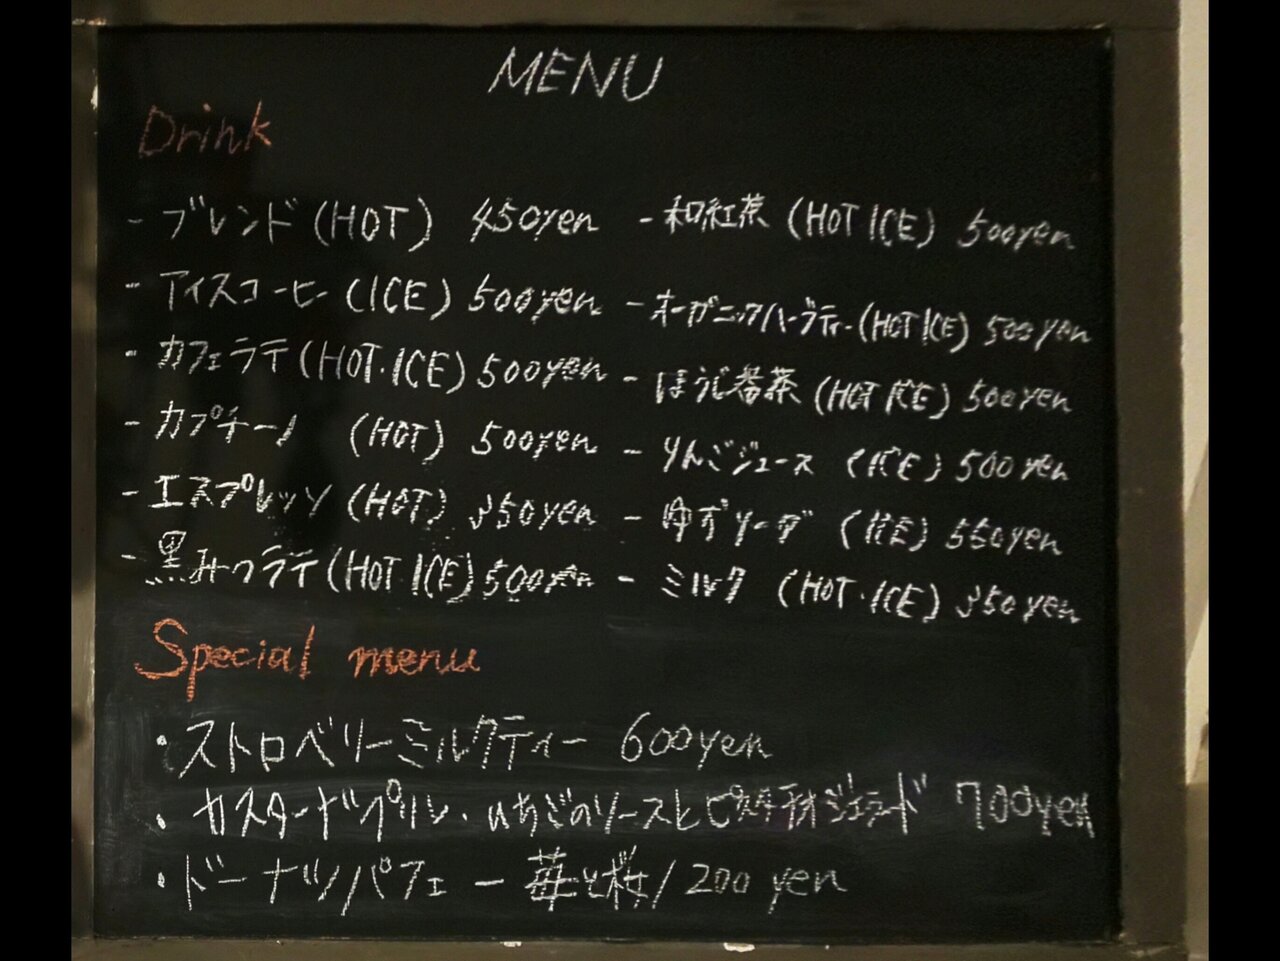 MENU
Drink
- ブレンド (HOT) 450yen
- アイスコーヒー (ICE) 500yen
- カフェラテ (HOT・ICE) 500yen
- カプチーノ (HOT) 500yen
- エスプレッソ (HOT) 350yen
- 黒みつラテ (HOT ICE) 500yen
- 和紅茶 (HOT ICE) 500yen
- オーガニックハーブティー (HOT ICE) 500yen
- ほうじ番茶 (HOT ICE) 500yen
- りんごジュース (ICE) 500yen
- ゆずソーダ (ICE) 550yen
- ミルク (HOT・ICE) 350yen
Special menu
・ストロベリーミルクティー 600yen
・カスタードプリン・いちごのソースとピスタチオジェラード 700yen
・ドーナツパフェ ー 苺と桜 / 200yen